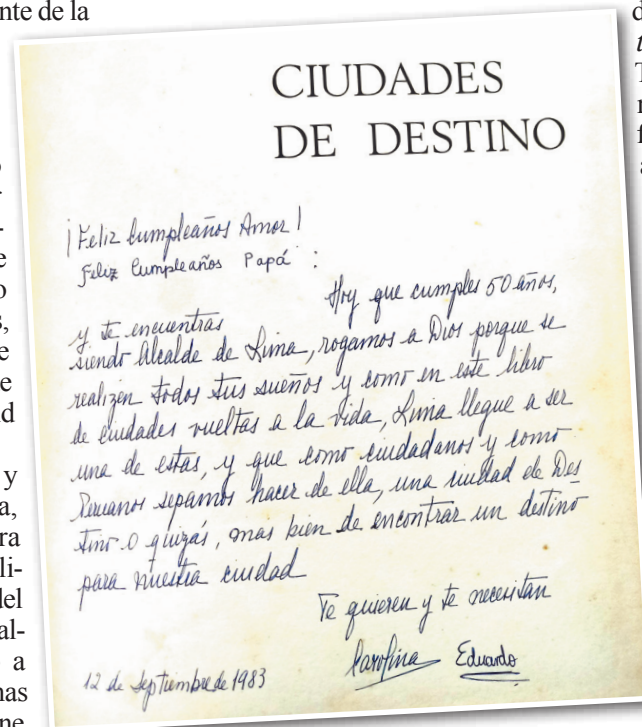 nte de la
CIUDADES
DE DESTINO
¡Feliz Cumpleaños Amor!
Feliz Cumpleaños Papá :
Hoy que cumples 50 años,
y te encuentras
siendo Alcalde de Lima, rogamos a Dios porque se
realizen todos tus sueños y como en este libro
de ciudades vueltas a la vida, Lima llegue a ser
una de estas, y que como ciudadanos y como
Peruanos sepamos hacer de ella, una ciudad de Des
tino o quizás, mas bien de encontrar un destino
para nuestra ciudad
Te quieren y te necesitan
Carolina Eduardo
12 de Septiembre de 1983